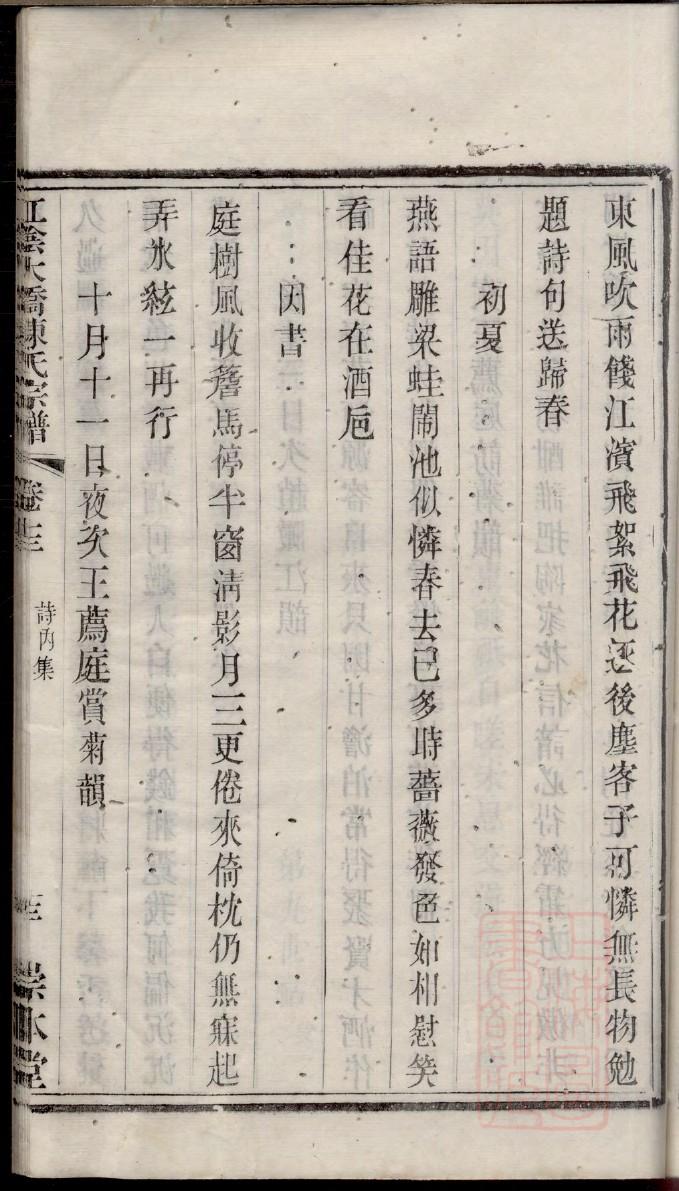 東風吹雨餞江濱飛絮飛花逐後塵客子可憐無長物勉
題詩句送歸春
初夏
燕語雕梁蛙鬧池似憐春去已多時薔薇發色如相慰笑
看佳花在酒卮
因書
庭樹風收簷馬停半窗淸影月三更倦來倚枕仍無寐起
弄氷絃一再行
十月十一日夜次王薦庭賞菊韻
江陰大橋陳氏宗譜
卷十三
詩內集
崇本堂